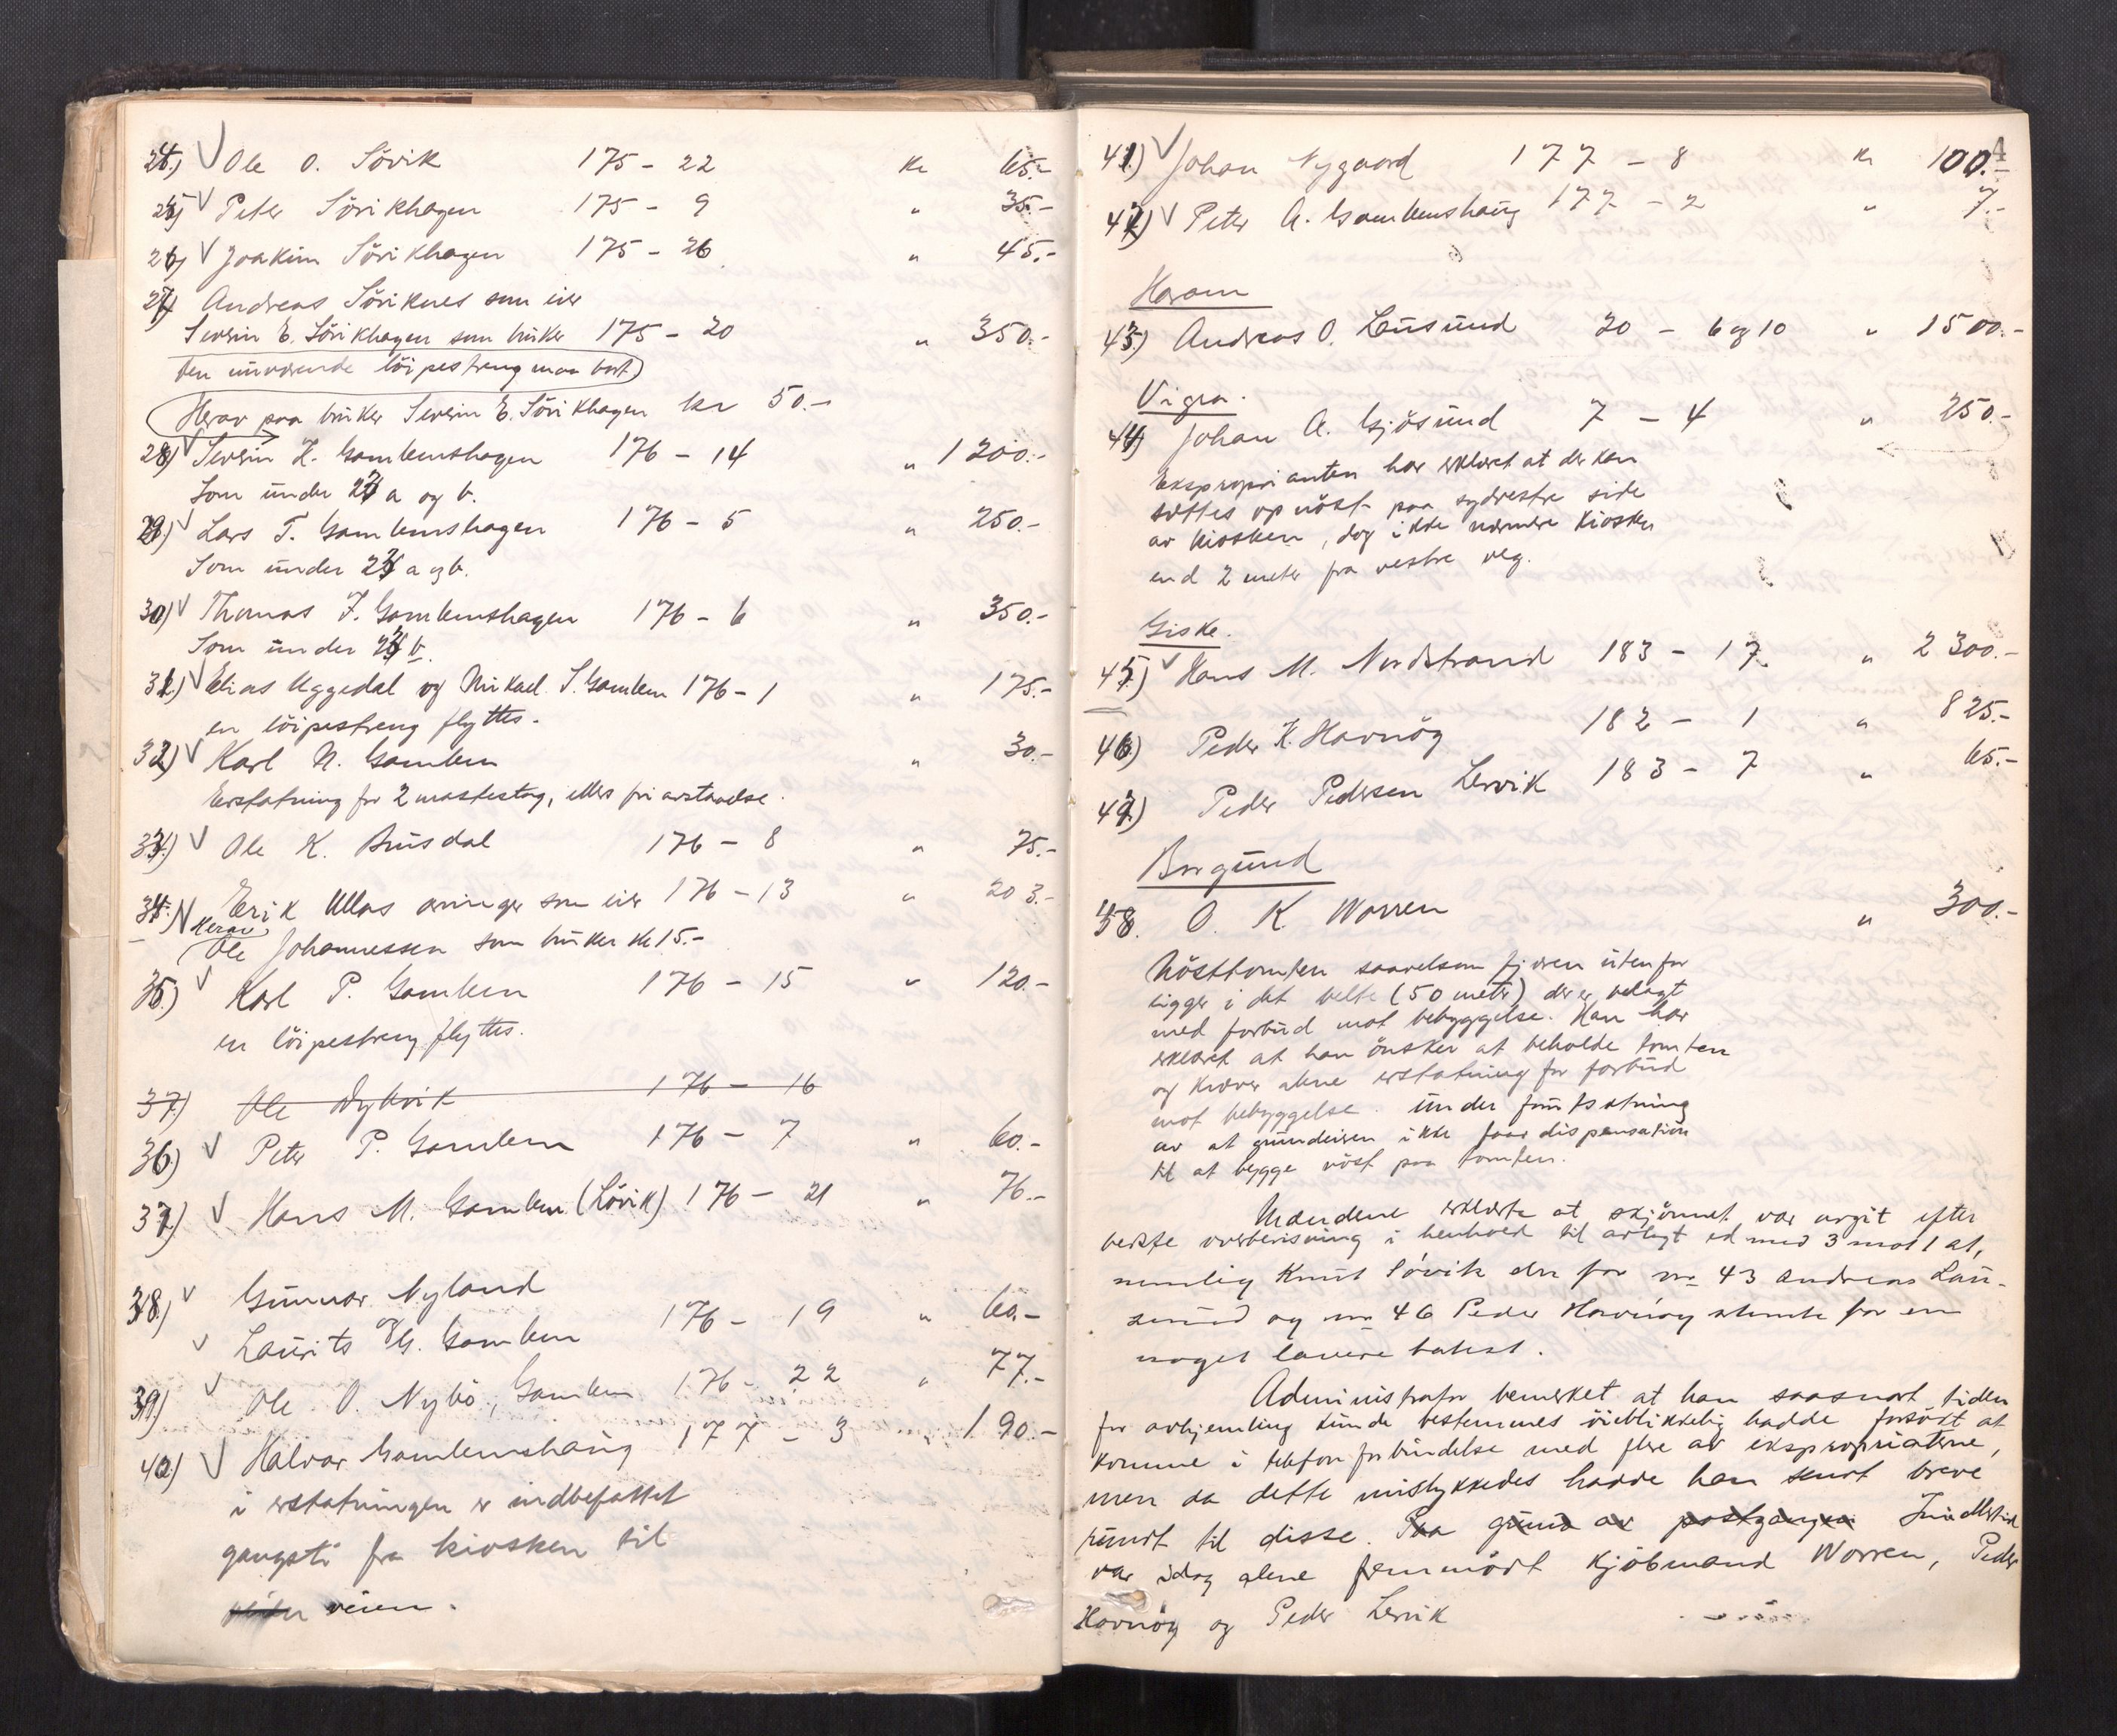 24.) V Ole O. Sövik 175 - 22 Kr 65.-
25) V Peter Sörikhagen 175 - 9 " 35.-
26) V Joakim Sörikhagen 175 - 26 " 45.-
27) Andreas Söriknes som eier
Severin E. Sörikhagen som bruker 175 - 20 " 350.-
den nuværende löipestreng maa bort
Herav paa bruker Severin E. Sörikhagen kr 50.-
28) V Severin K. Gamlemshagen 176 - 14 " 1200.-
Som under 23 a og b.
29.) V Lars T. Gamlemshagen 176 - 5 " 250.-
Som under 23 a og b.
30) V Thomas J. Gamlemshagen 176 - 6 " 350.-
Som under 23 b.
31.) V Elias Uggedal og Mikael S. Gamlem 176 - 1 " 175.-
en löipestreng flyttes.
32) V Karl N. Gamlem " 30.-
Erstatning for 2 mastestag, ellers fri avstaaelse.
33.) V Ole K. Busdal 176 - 8 " 75.-
34. V Erik Ullas arvinger som eier 176 - 13 " 203.-
Herav
Ole Johannessen som bruker kr 15.-
35.) V Karl P. Gamlem 176 - 15 " 120.-
en löipestreng flyttes.
37.) Ole Dybvik 176 - 16
36) V Peter P. Gamlem 176 - 7 " 60.-
37.) V Hans M. Gamlem (Lövik) 176 - 21 " 76.-
38.) V Gunnar Nyland
og
V Laurits G. Gamlem 176 - 19 " 60.-
39) V Ole O. Nybö, Gamlem 176 - 22 " 77.-
40.) V Halvar Gamlemshaug 177 - 3 " 190.-
i erstatningen er indbefattet
gangsti fra kiosken til
veien.
41.) V Johan Nygaard 177 - 8 Kr 100.-
42.) V Peter A. Gamlemshaug 177 - 2 " 7.-
Haram
43.) Andreas O. Lausund 20 - 6 og 10 " 1500.-
Vigra.
44) Johan A. Gjösund 7 - 4 " 250.-
Eksproprianten har erklæret at der kan
sættes op nöst paa sydvestre side
av kiosken, dog ikke nærmere kiosken
end 2 meter fra vestre veg.
Giske.
45.) V Hans M. Nordstrand 183 - 17 " 2300.-
46.) Peder K. Havnöy 182 - 1 " 825.-
47.) Peder Pedersen Lervik 183 - 7 " 65.-
Borgund
48. O. K. Worren " 300.-
Nösttomten saavelsom fjæren utenfor
ligger i det belte (50 meter) der er belagt
med forbud mot bebyggelse. Han har
erklæret at han önsker at beholde tomten
og kræver alene erstatning for forbud
mot bebyggelse. under forutsætning
av at grundeieren ikke faar dispensation
til at bygge nöst paa tomten.
Mændene erklærte at skjönnet var avgit efter
bedste overbevisning i henhold til avlagt ed med 3 mot 1 at,
nemlig Knut Sövik der for nr 43 Andreas Lau-
sund og nr 46 Peder Havnöy stemte for en
noget lavere takst.
Administrator bemerket at han saasnart tiden
for avhjemling kunde bestemmes öieblikkelig hadde forsökt at
komme i telefonforbindelse med flere av ekspropriaterne,
men da dette mislykkedes hadde han sendt breve
rundt til disse. Paa grund av postgangen Imidlertid
var idag alene fremmödt kjöbmand Worren, Peder
Havnöy og Peder Lervik